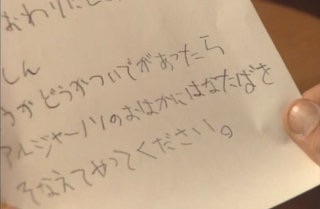 おわりに
しん
うかどうかついでがあったら
アルジャーノンのおはかにはなたばを
そなえてやってください。